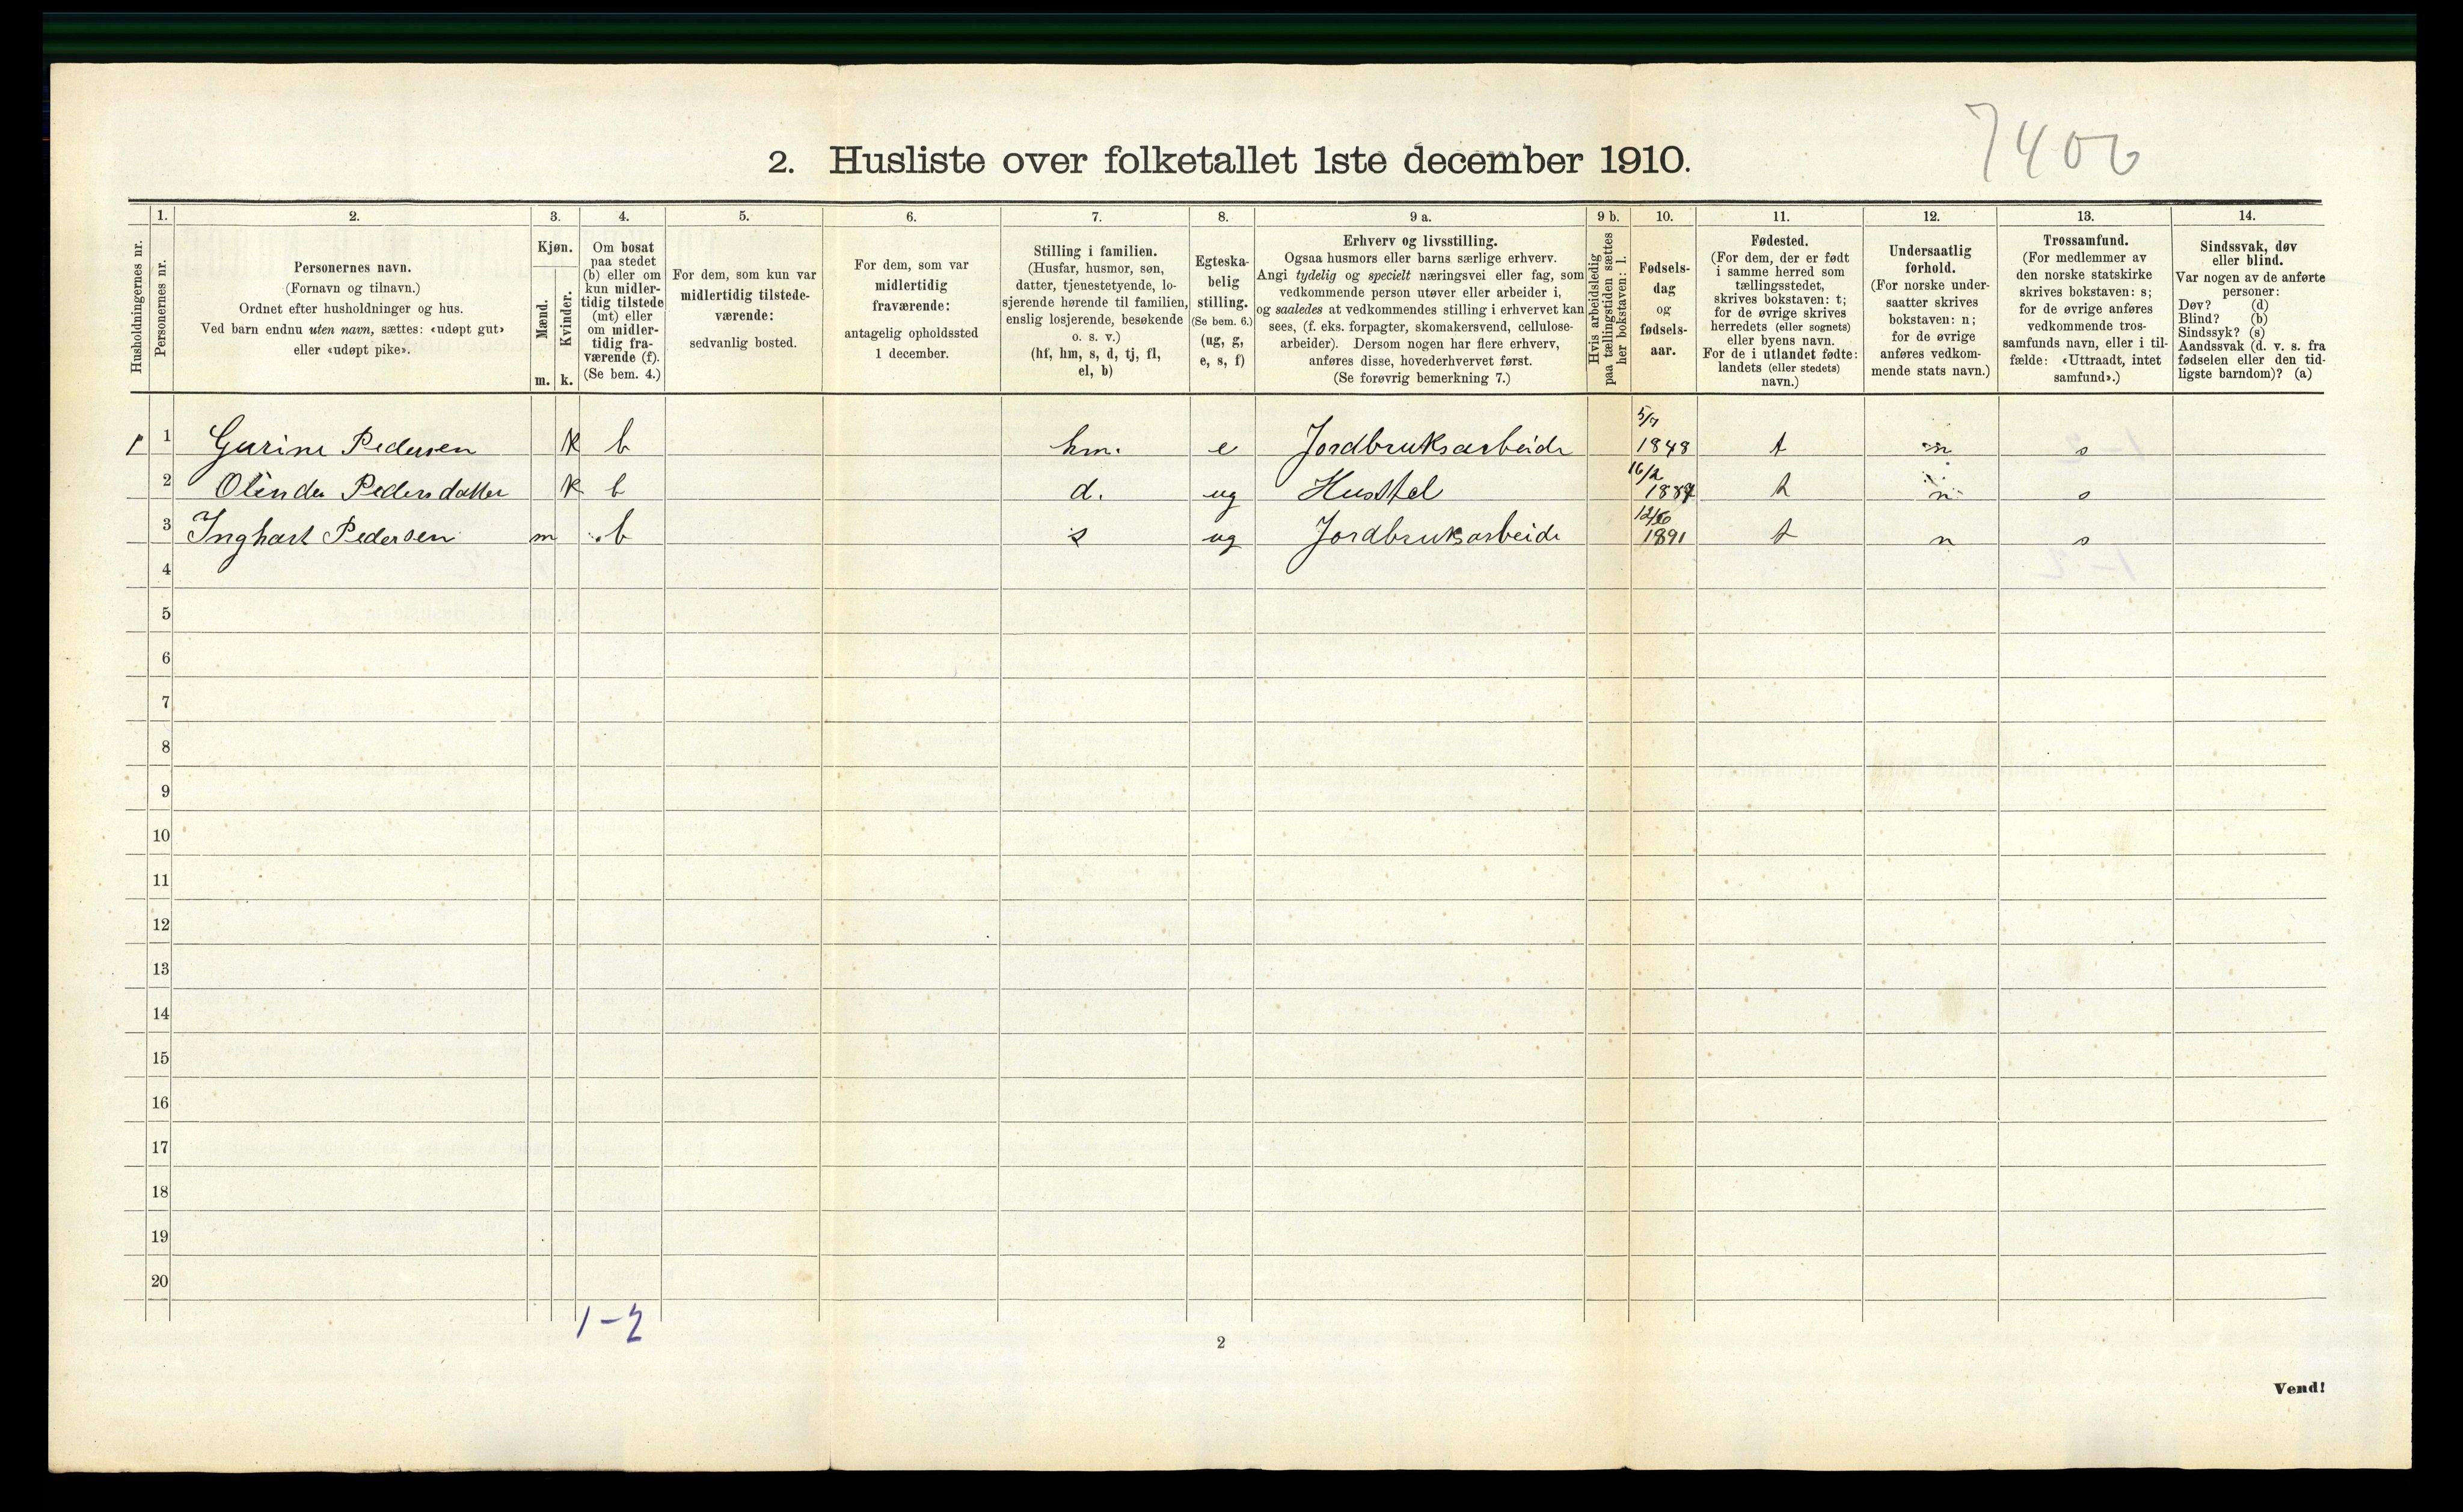 7400
2. Husliste over folketallet 1ste december 1910.
Husholdningernes nr.
1. Personernes nr.
2. Personernes navn. (Fornavn og tilnavn.) Ordnet efter husholdninger og hus. Ved barn endnu uten navn, sættes: «udøpt gut» eller «udøpt pike».
3. Kjøn. Mænd. m. Kvinder. k.
4. Om bosat paa stedet (b) eller om kun midlertidig tilstede (mt) eller om midlertidig fraværende (f). (Se bem. 4.)
5. For dem, som kun var midlertidig tilstedeværende: sedvanlig bosted.
6. For dem, som var midlertidig fraværende: antagelig opholdssted 1 december.
7. Stilling i familien. (Husfar, husmor, søn, datter, tjenestetyende, losjerende hørende til familien, enslig losjerende, besøkende o. s. v.) (hf, hm, s, d, tj, fl, el, b)
8. Egteskabelig stilling. (Se bem. 6.) (ug, g, e, s, f)
9 a. Erhverv og livsstilling. Ogsaa husmors eller barns særlige erhverv. Angi tydelig og specielt næringsvei eller fag, som vedkommende person utøver eller arbeider i, og saaledes at vedkommendes stilling i erhvervet kan sees, (f. eks. forpagter, skomakersvend, cellulosearbeider). Dersom nogen har flere erhverv, anføres disse, hovederhvervet først. (Se forøvrig bemerkning 7.)
9 b. Hvis arbeidsledig paa tællingstiden sættes her bokstaven: l.
10. Fødselsdag og fødselsaar.
11. Fødested. (For dem, der er født i samme herred som tællingsstedet, skrives bokstaven: t; for de øvrige skrives herredets (eller sognets) eller byens navn. For de i utlandet fødte: landets (eller stedets) navn.)
12. Undersaatlig forhold. (For norske undersaatter skrives bokstaven: n; for de øvrige anføres vedkommende stats navn.)
13. Trossamfund. (For medlemmer av den norske statskirke skrives bokstaven: s; for de øvrige anføres vedkommende trossamfunds navn, eller i tilfælde: «Uttraadt, intet samfund».)
14. Sindssvak, døv eller blind. Var nogen av de anførte personer: Døv? (d) Blind? (b) Sindssyk? (s) Aandssvak (d. v. s. fra fødselen eller den tidligste barndom)? (a)
1 1 Gurine Pedersen k b hm. e Jordbruksarbeide 5/7 1848 t n s
2 Olinda Pedersdatter k b d. ug Husstel 16/2 1887 t n s
3 Inghart Pedersen m b s ug Jordbruksarbeide 12/6 1891 t n s
4
5
6
7
8
9
10
11
12
13
14
15
16
17
18
19
20
1-2
2
Vend!